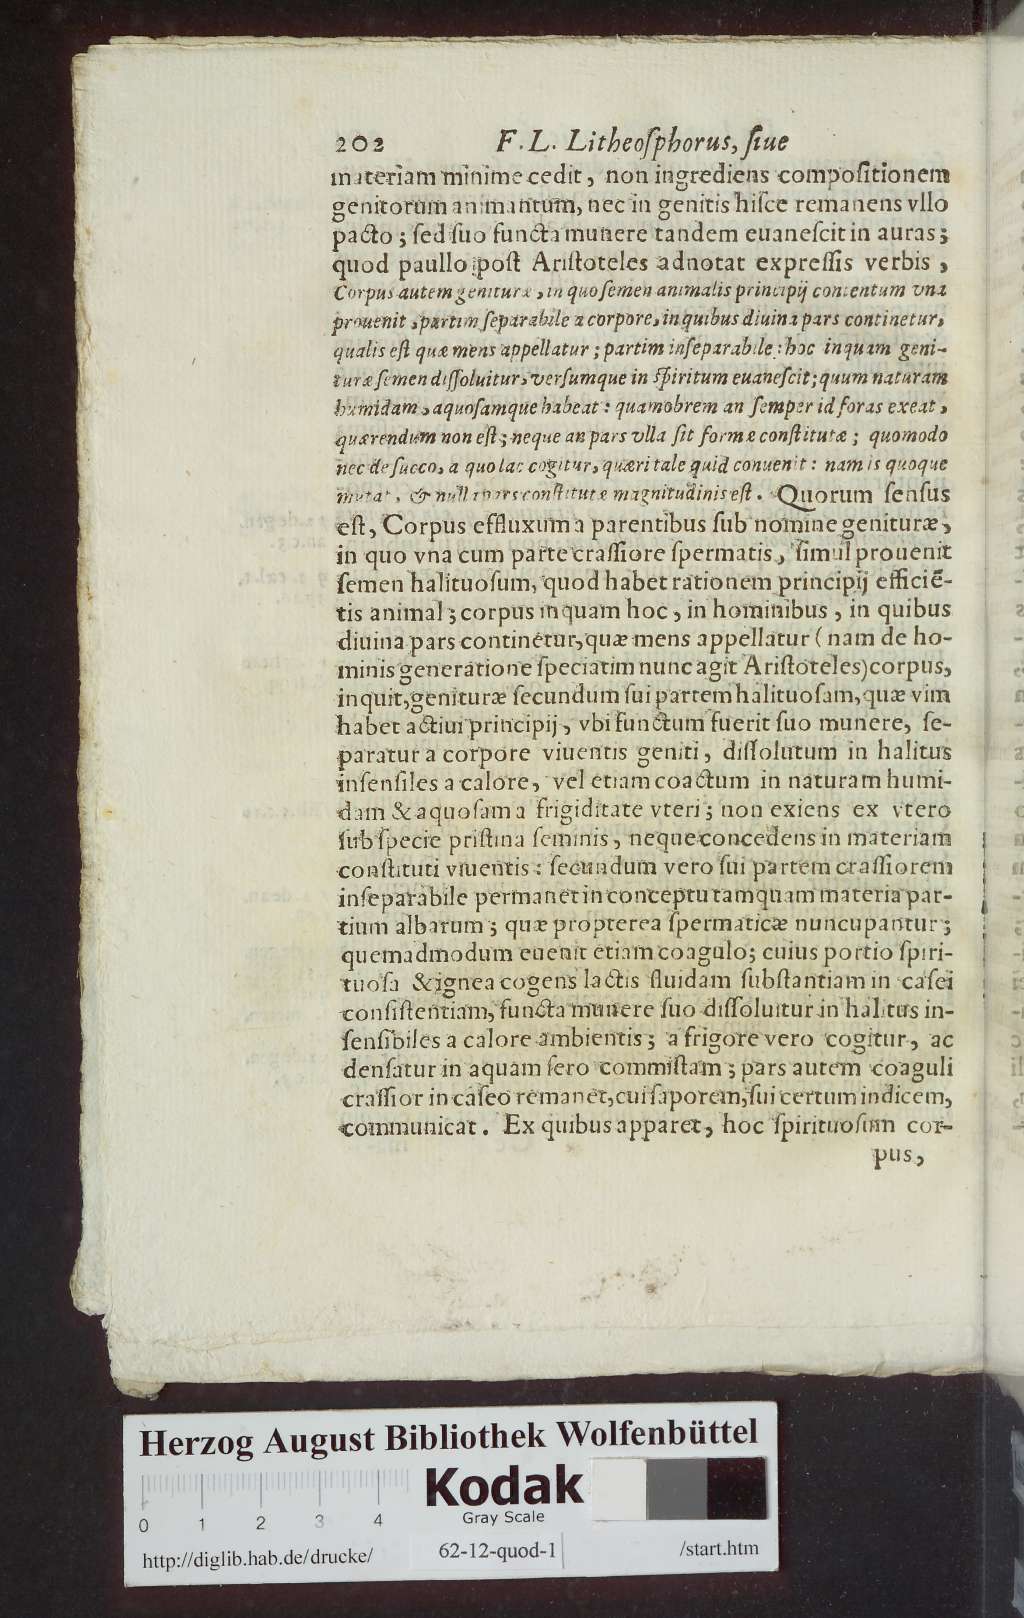 202 F. L. Litheoſphorus, ſiue
materiam minime cedit, non ingrediens compoſitionem
genitorum animantum, nec in genitis hiſce remanens vllo
pacto; ſed ſuo functa munere tandem euaneſcit in auras;
quod paullo poſt Ariſtoteles adnotat expreſſis verbis,
Corpus autem genituræ, in quo ſemen animalis principij contentum vna
prouenit, partim ſeparabile a corpore, in quibus diuina pars continetur,
qualis eſt quæ mens appellatur; partim inſeparabile: hoc inquam geni-
turæ ſemen diſſoluitur, verſumque in ſpiritum euaneſcit; quum naturam
humidam, aquoſamque habeat: quamobrem an ſemper id foras exeat,
quærendum non eſt; neque an pars vlla ſit formæ conſtitutæ; quomodo
nec de ſucco, a quo lac cogitur, quæri tale quid conuenit: nam is quoque
mutat, & nulla pars conſtitutæ magnitudinis eſt. Quorum ſenſus
eſt, Corpus effluxum a parentibus ſub nomine genituræ,
in quo vna cum parte craſſiore ſpermatis, ſimul prouenit
ſemen halituoſum, quod habet rationem principij efficiē-
tis animal; corpus inquam hoc, in hominibus, in quibus
diuina pars continetur, quæ mens appellatur (nam de ho-
minis generatione ſpeciatim nunc agit Ariſtoteles) corpus,
inquit, genituræ ſecundum ſui partem halituoſam, quæ vim
habet actiui principij, vbi functum fuerit ſuo munere, ſe-
paratur a corpore viuentis geniti, diſſolutum in halitus
inſenſiles a calore, vel etiam coactum in naturam humi-
dam & aquoſam a frigiditate vteri; non exiens ex vtero
ſub ſpecie priſtina ſeminis, neque concedens in materiam
conſtituti viuentis: ſecundum vero ſui partem craſſiorem
inſeparabile permanet in conceptu tamquam materia par-
tium albarum; quæ propterea ſpermaticæ nuncupantur;
quemadmodum euenit etiam coagulo; cuius portio ſpiri-
tuoſa & ignea cogens lactis fluidam ſubſtantiam in caſei
conſiſtentiam, functa munere ſuo diſſoluitur in halitus in-
ſenſibiles a calore ambientis; a frigore vero cogitur, ac
denſatur in aquam ſero commiſtam; pars autem coaguli
craſſior in caſeo remanet, cui ſaporem, ſui certum indicem,
communicat. Ex quibus apparet, hoc ſpirituoſum cor-
pus,
Herzog August Bibliothek Wolfenbüttel
Kodak
Gray Scale
0 1 2 3 4
http://diglib.hab.de/drucke/ 62-12-quod-1 /start.htm